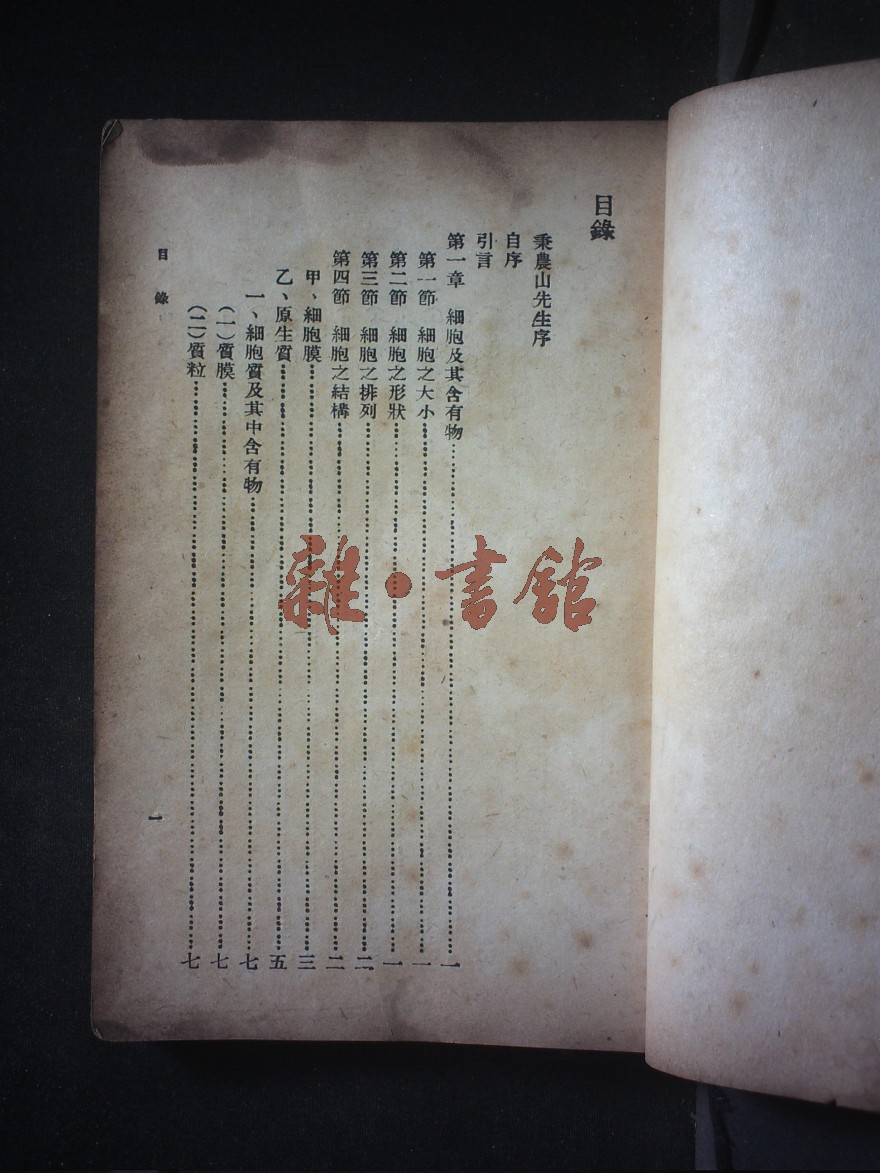 目錄
秉農山先生序
自序
引言
第一章 細胞及其含有物……一
第一節 細胞之大小……一
第二節 細胞之形狀……一
第三節 細胞之排列……二
第四節 細胞之結構……二
甲、細胞膜……三
乙、原生質……五
一、細胞質及其中含有物……七
(一)質膜……七
(二)質粒……七
目錄
1
雜·書館